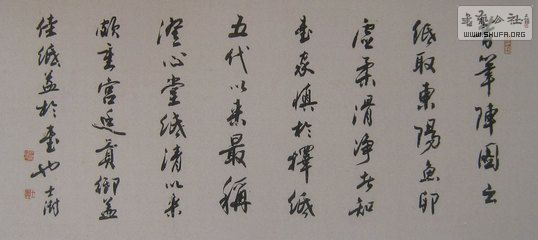 筆陣圖云
紙取東陽魚卵
虛柔滑淨者知
書家慎於擇紙
五代以來最稱
澄心堂紙清以來
頗重宮廷貢御蓋
佳紙益於書也 士澍
书艺公社
WWW.SHUFA.ORG